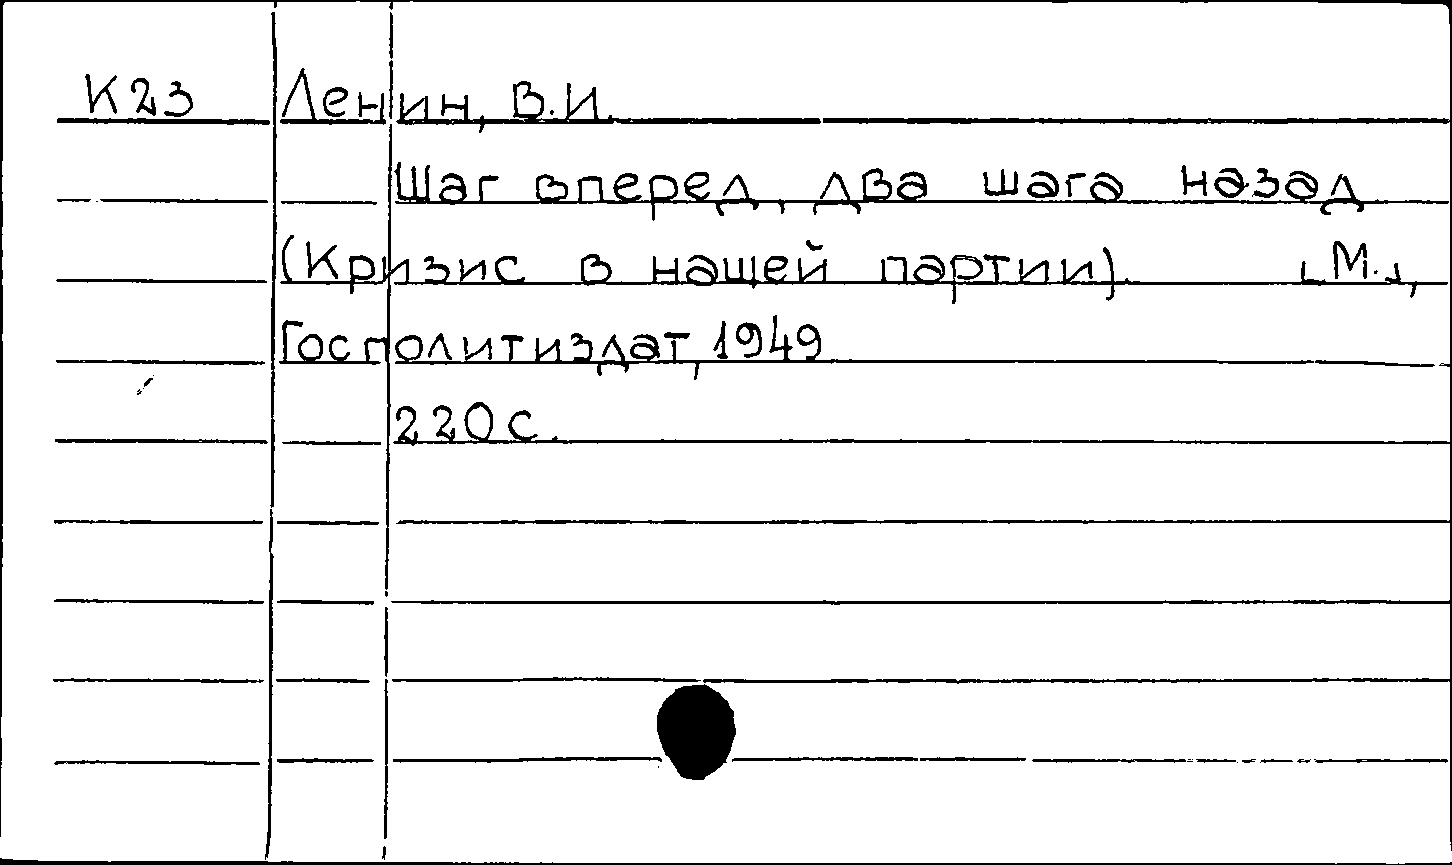 К23 Ленин, В.И.
Шаг вперед, два шага назад
(Кризис в нашей партии). [М.],
Госполитиздат, 1949
220 с.